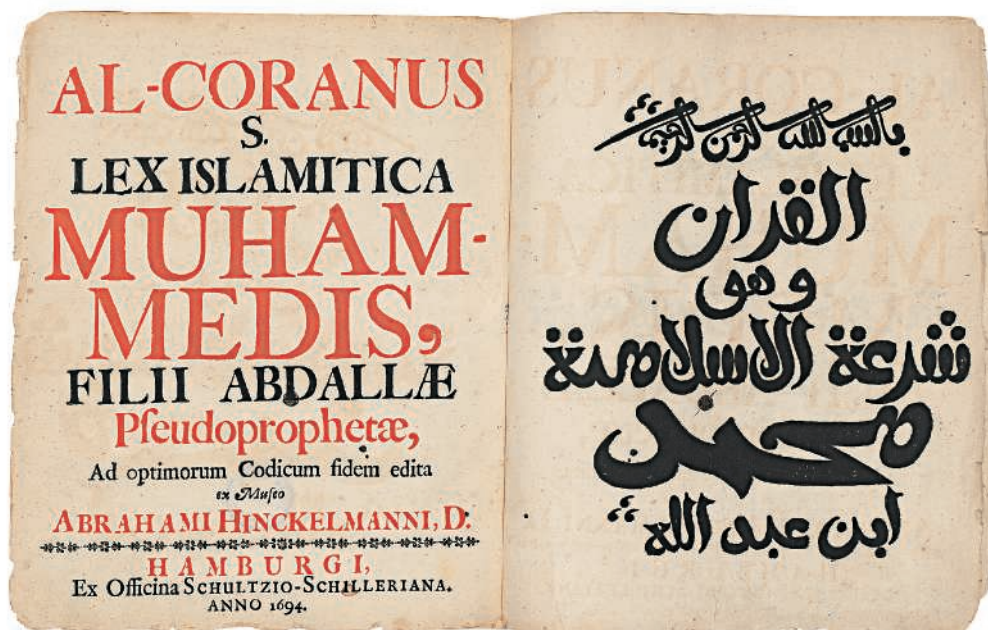 AL-CORANUS
S.
LEX ISLAMITICA
MUHAM-
MEDIS,
FILII ABDALLÆ
Pſeudoprophetæ,
Ad optimorum Codicum fidem edita
ex Muſeo
ABRAHAMI HINCKELMANNI, D.
HAMBURGI,
Ex Officina SCHULTZIO-SCHILLERIANA.
ANNO 1694.
الله الرحمن الرحيم
القران
وهو
شرعة الاسلامية
محمد
ابن عبد الله